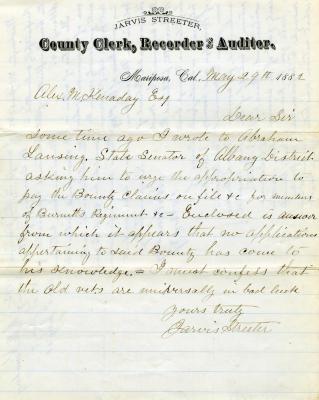 JARVIS STREETER,
County Clerk, Recorder and Auditor.
Mariposa, Cal. May 29th 1882
Alex. M. Kenaday Esq
Dear Sir
Some time ago I wrote to Abraham
Lansing, State Senator of Albany District
asking him to urge the appropriation to
pay the Bounty Claims on file &c for members
of Burnetts Regiment &c - Enclosed is answer
from which it appears that no applications
appertaining to said Bounty has come to
his knowledge. = I must confess that
the old vets are universally in bad luck
Yours truly
Jarvis Streeter